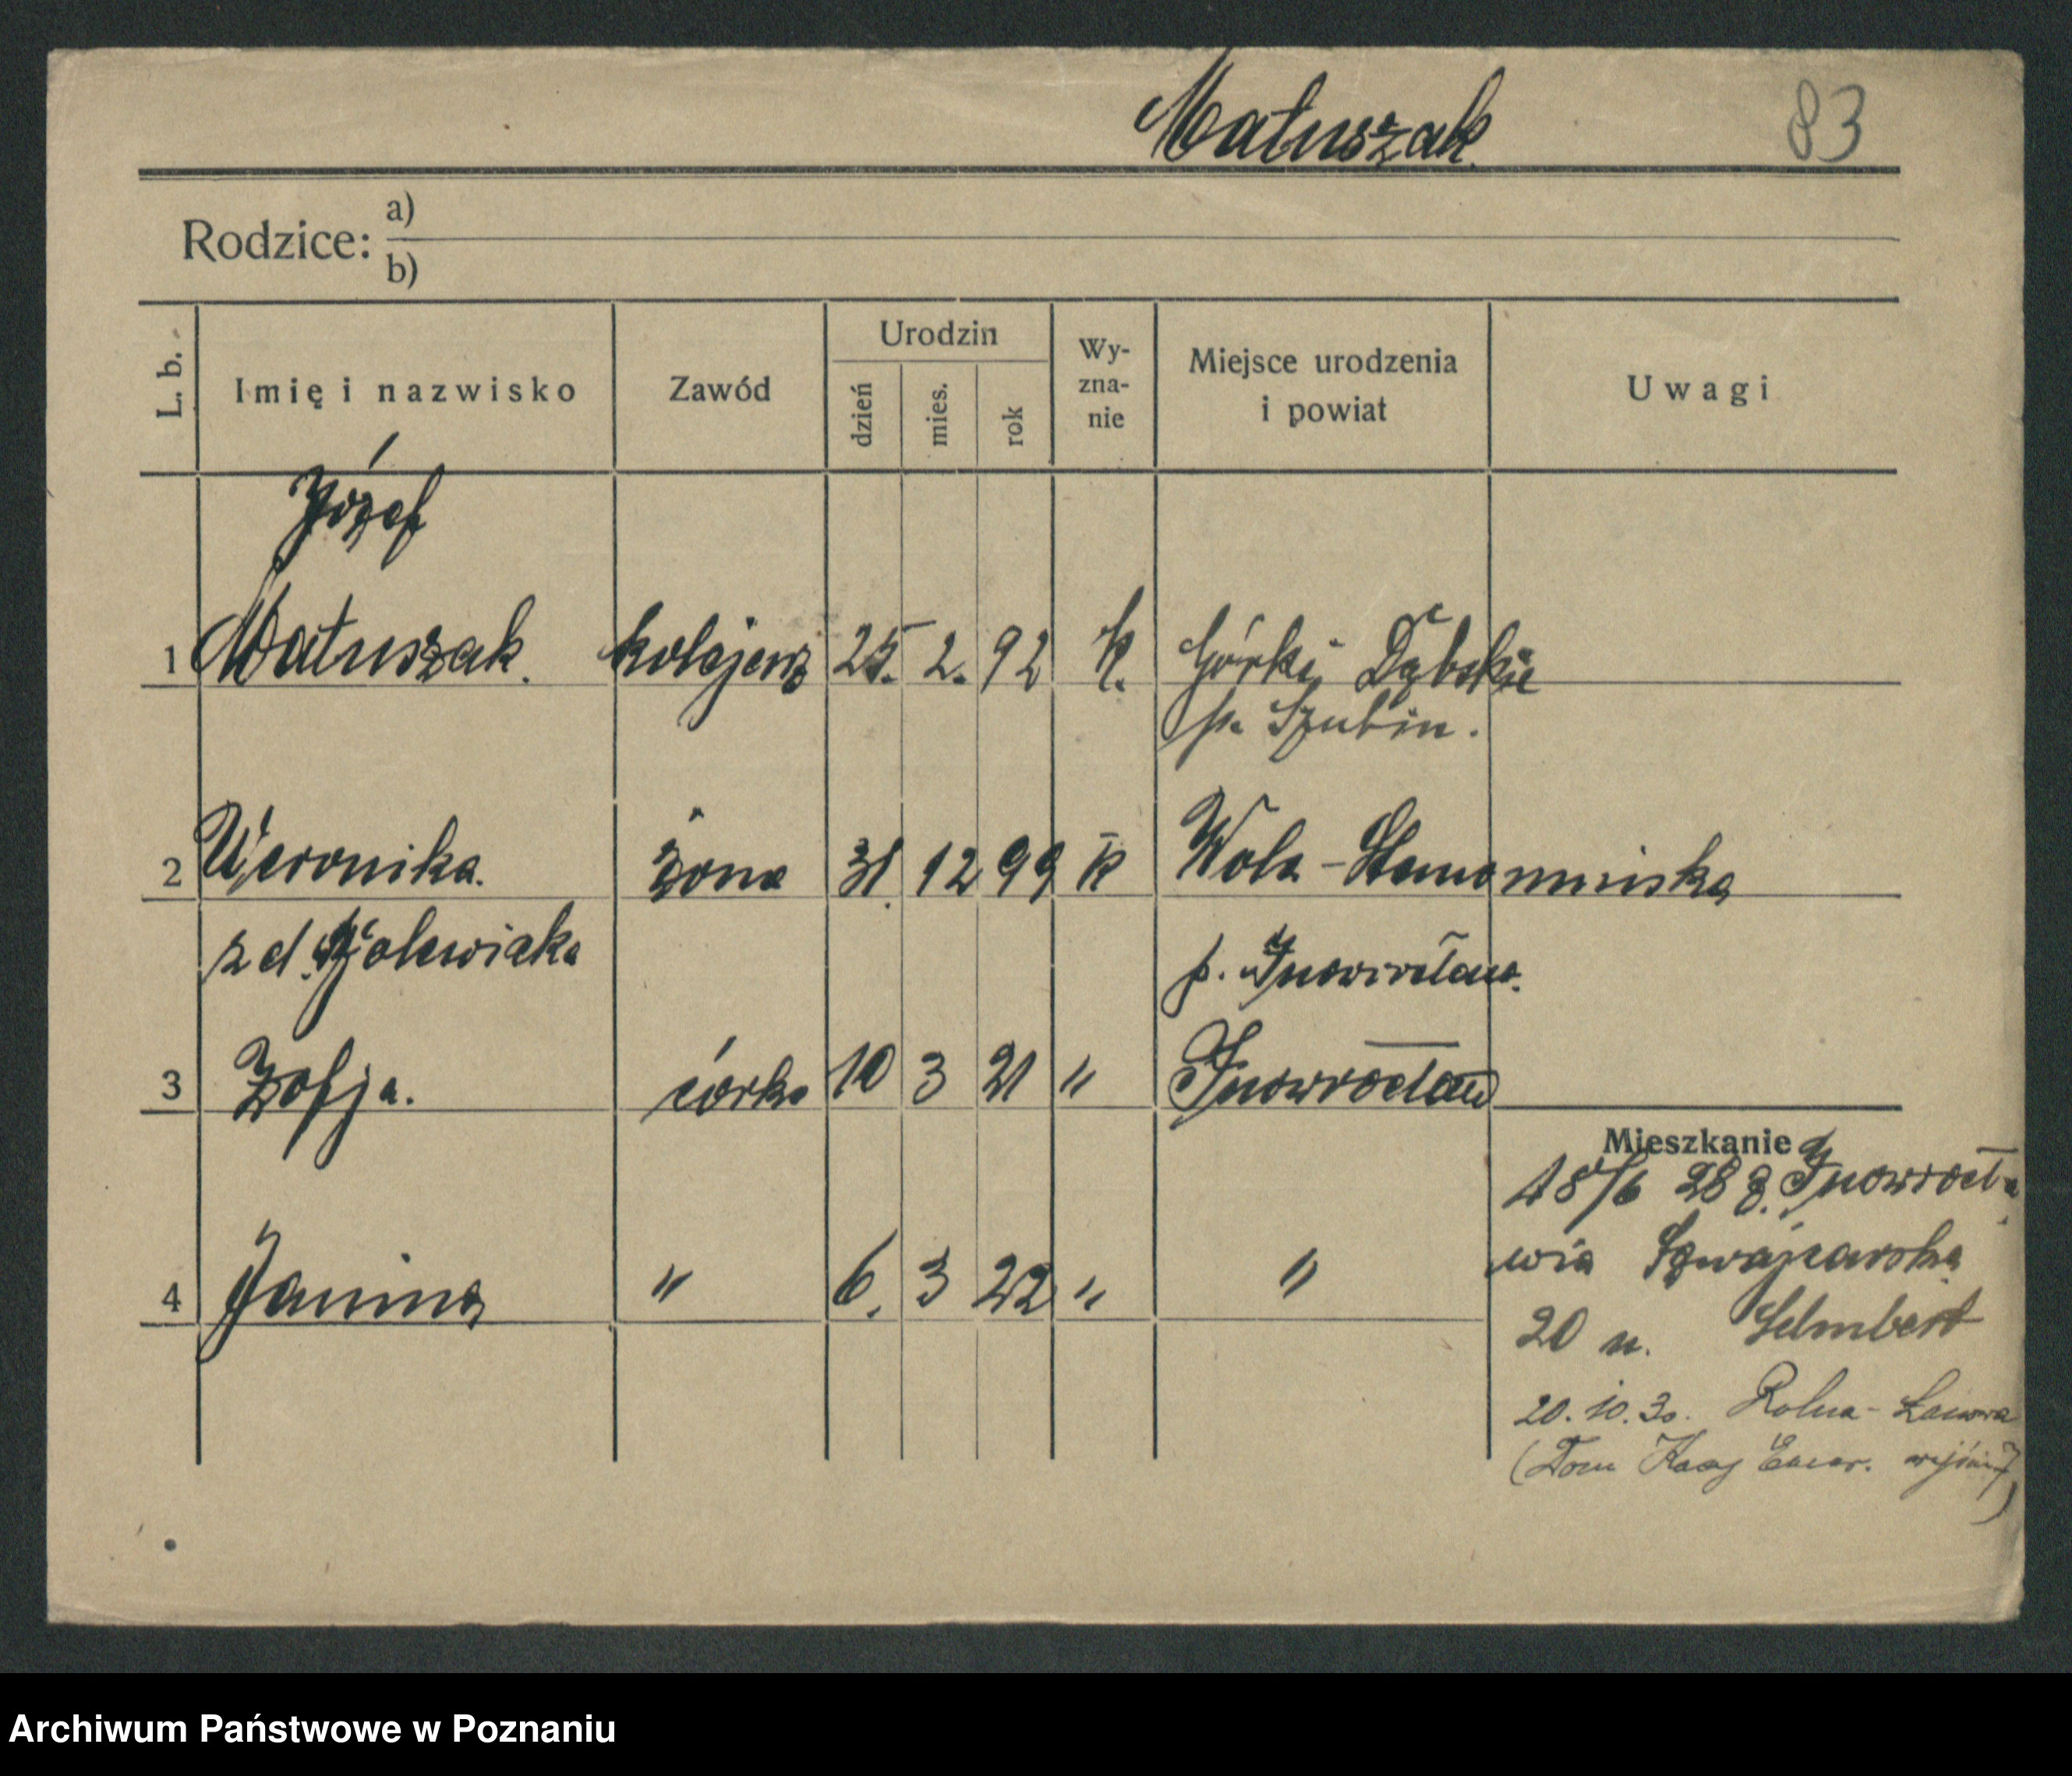 Matuszak
83
Rodzice: a)
b)
L. b.
Imię i nazwisko
Zawód
Urodzin
dzień
mies.
rok
Wy-
zna-
nie
Miejsce urodzenia
i powiat
Uwagi
Józef
1 Matuszak. kolejarz 25. 2. 92 k. Górki Dąbskie
p. Szubin.
2 Weronika. żona 31. 12 99 k Wola-
z d. p. Inowrocław.
3 Zofja. córka 10 3 21 " Inowrocław
Mieszkanie
18/6 28 z Inowrocła
4 Janina " 6. 3 22 " "
wia Szwajcarska
20 u.
20.10.30. Rolna-
(Dom
Archiwum Państwowe w Poznaniu